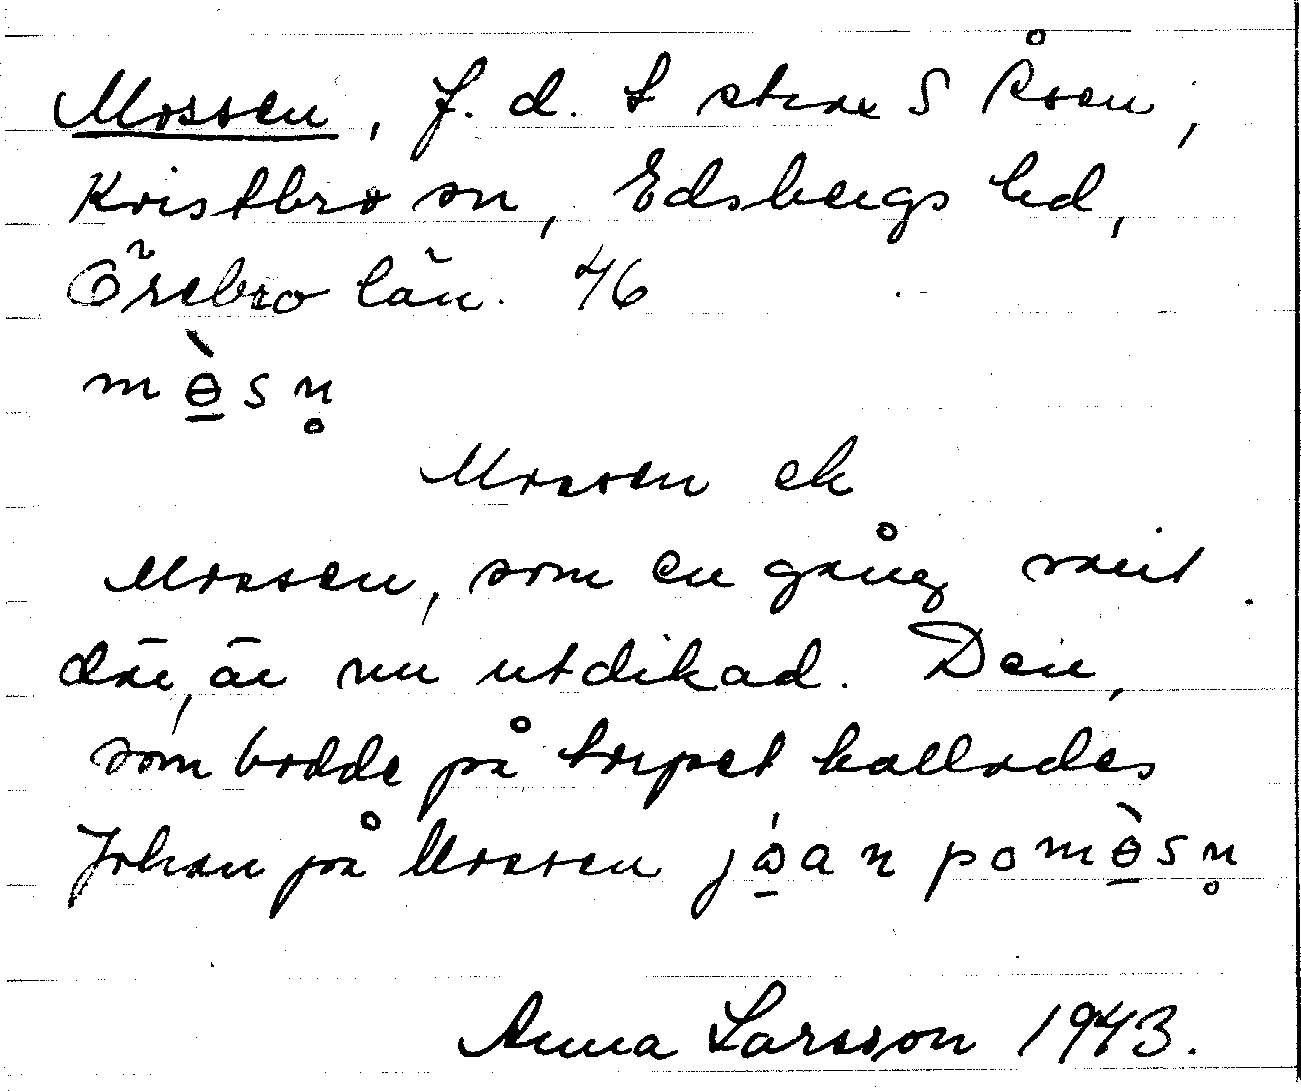 Mossen, f. d. t S Åsen,
Kvistbro sn, Edsbergs hd,
Örebro län. 46
mө̀sn̥
Mossen ek
Mossen, som en gång varit
där, är nu utdikad. Den,
som bodde på torpet kallades
Johan på Mossen jóan po mө̀sn̥
Anna Larsson 1943.